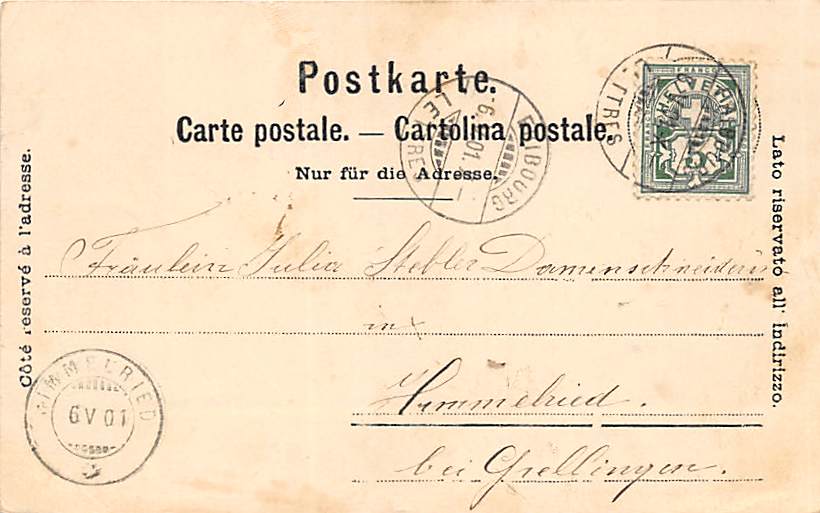 Postkarte.
Carte postale. — Cartolina postale.
Nur für die Adresse.
Côté reservé à l'adresse.
Lato riservato all' indirizzo.
FRANCO
HELVETIA
5
FRIBOURG
LETTRES
6. 01.
Fräulein Julia Stebler Damenschneiderin
in
Himmelried.
bei Grellingen.
HIMMELRIED
6 V 01